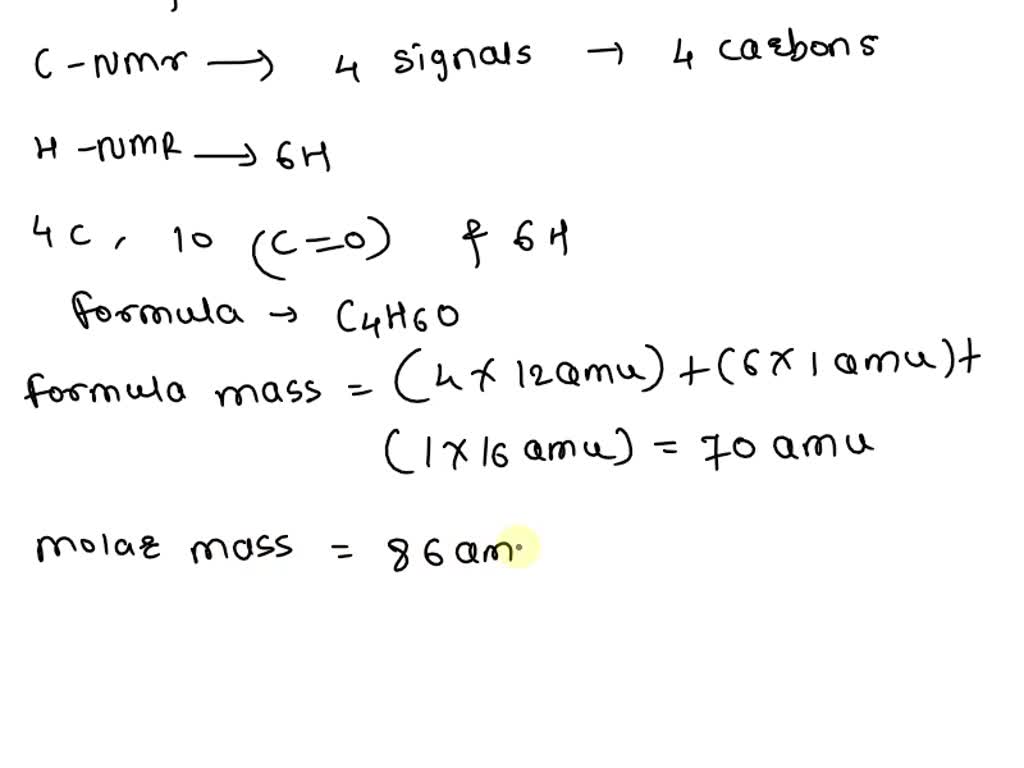 C-NMr → 4 signals → 4 carbons
H-NMR → 6H
4C, 1O (C=O) & 6H
formula → C4H6O
formula mass = (4 × 12 amu) + (6 × 1 amu) +
(1 × 16 amu) = 70 amu
molar mass = 86 am